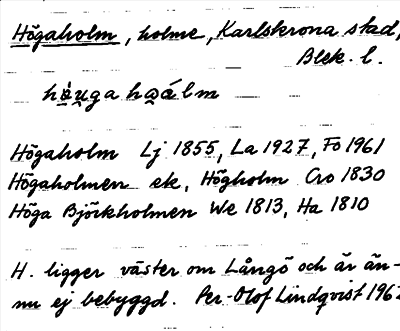 Högaholm, holme, Karlskrona stad,
Blek. l.
Högaholm Lj 1855, La 1927, Fo 1961
Högaholmen ek, Högholm Cro 1830
Höga Björkholmen We 1813, Ha 1810
H. ligger väster om Långö och är än-
nu ej bebyggd. Per-Olof Lindqvist